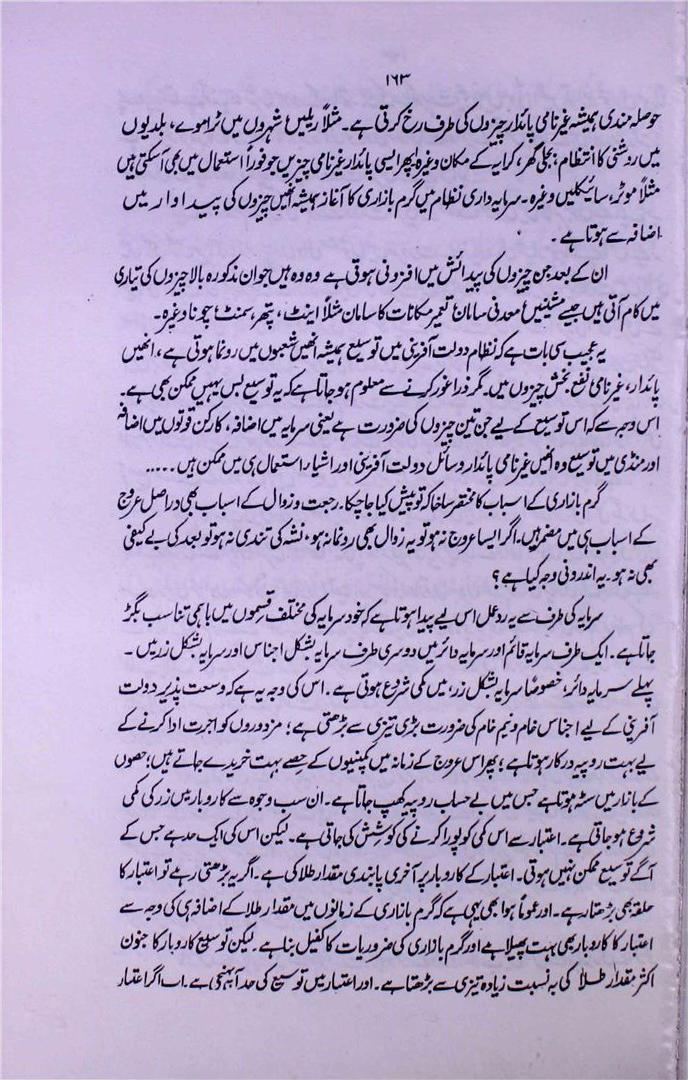 ۱۶۳
حوصلہ مندی ہمیشہ غیر نامی پائدار چیزوں کی طرف رخ کرتی ہے۔ مثلاً ریلیں؛ شہروں میں ٹراموے، بلدیوں
میں روشنی کا انتظام؛ بجلی گھر، کرایہ کے مکان وغیرہ پھر ایسی پائدار غیر نامی چیزیں جو فوراً استعمال میں بھی آسکتی ہیں
مثلاً موٹر، سائیکلیں وغیرہ۔ سرمایہ داری نظام میں گرم بازاری کا آغاز ہمیشہ انھیں چیزوں کی پیداوار میں
اضافہ سے ہوتا ہے۔
ان کے بعد جن چیزوں کی پیدائش میں افزونی ہوتی ہے وہ وہ ہیں جو ان مذکورہ بالا چیزوں کی تیاری
میں کام آتی ہیں جیسے مشینیں؛ معدنی سامان؛ تعمیر مکانات کا سامان مثلاً اینٹ، پتھر، سمنٹ؛ چونا وغیرہ۔
یہ عجیب سی بات ہے کہ نظام دولت آفرینی میں توسیع ہمیشہ انھیں شعبوں میں رونما ہوتی ہے، انھیں
پائدار، غیر نامی نفع بخش چیزوں میں۔ مگر ذرا غور کرنے سے معلوم ہو جاتا ہے کہ یہ توسیع بس یہیں ممکن بھی ہے۔
اس وجہ سے کہ اس توسیع کے لیے جن تین چیزوں کی ضرورت ہے یعنی سرمایہ میں اضافہ، کارکن قوتوں میں اضافہ
اور منڈی میں توسیع وہ انھیں غیر نامی پائدار وسائل دولت آفرینی اور اشیار استعمال ہی میں ممکن ہیں.....
گرم بازاری کے اسباب کا مختصر سا خاکہ تو پیش کیا جا چکا۔ رجعت و زوال کے اسباب بھی در اصل عروج
کے اسباب ہی میں مضمر ہیں۔ اگر ایسا عروج نہ ہو تو یہ زوال بھی رونما نہ ہو، نشہ کی تندی نہ ہو تو بعد کی بے کیفی
بھی نہ ہو۔ یہ اندرونی وجہ کیا ہے؟
سرمایہ کی طرف سے یہ رد عمل اس لیے پیدا ہوتا ہے کہ خود سرمایہ کی مختلف قسموں میں باہمی تناسب بگڑ
جاتا ہے۔ ایک طرف سرمایہ قائم اور سرمایہ دائر میں دوسری طرف سرمایہ بشکل اجناس اور سرمایہ بشکل زر میں۔
پہلے سرمایہ دائر، خصوصاً سرمایہ بشکل زر، میں کمی شروع ہوتی ہے۔ اس کی وجہ یہ ہے کہ وسعت پذیر دولت
آفرینی کے لیے اجناس خام و نیم خام کی ضرورت بڑی تیزی سے بڑھتی ہے؛ مزدوروں کو اجرت ادا کرنے کے
لیے بہت روپیہ درکار ہوتا ہے؛ پھر اس عروج کے زمانہ میں کمپنیوں کے حصے بہت خریدے جاتے ہیں؛ حصوں
کے بازار میں سٹہ ہوتا ہے جس میں بے حساب روپیہ کھپ جاتا ہے۔ ان سب وجوہ سے کاروبار میں زر کی کمی
شروع ہو جاتی ہے۔ اعتبار سے اس کمی کو پورا کرنے کی کوشش کی جاتی ہے۔ لیکن اس کی ایک حد ہے جس کے
آگے توسیع ممکن نہیں ہوتی۔ اعتبار کے کاروبار پر آخری پابندی مقدار طلا کی ہے۔ اگر یہ بڑھتی رہے تو اعتبار کا
حلقہ بھی بڑھتا رہے۔ اور عموماً ہوا بھی یہی ہے کہ گرم بازاری کے زمانوں میں مقدار طلا کے اضافہ ہی کی وجہ سے
اعتبار کا کاروبار بھی بہت پھیلا ہے اور گرم بازاری کی ضروریات کا کفیل بنا ہے۔ لیکن توسیع کاروبار کا جنون
اکثر مقدار طلا کی بہ نسبت زیادہ تیزی سے بڑھتا ہے۔ اور اعتبار میں توسیع کی حد آپہنچی ہے۔ اب اگر اعتبار